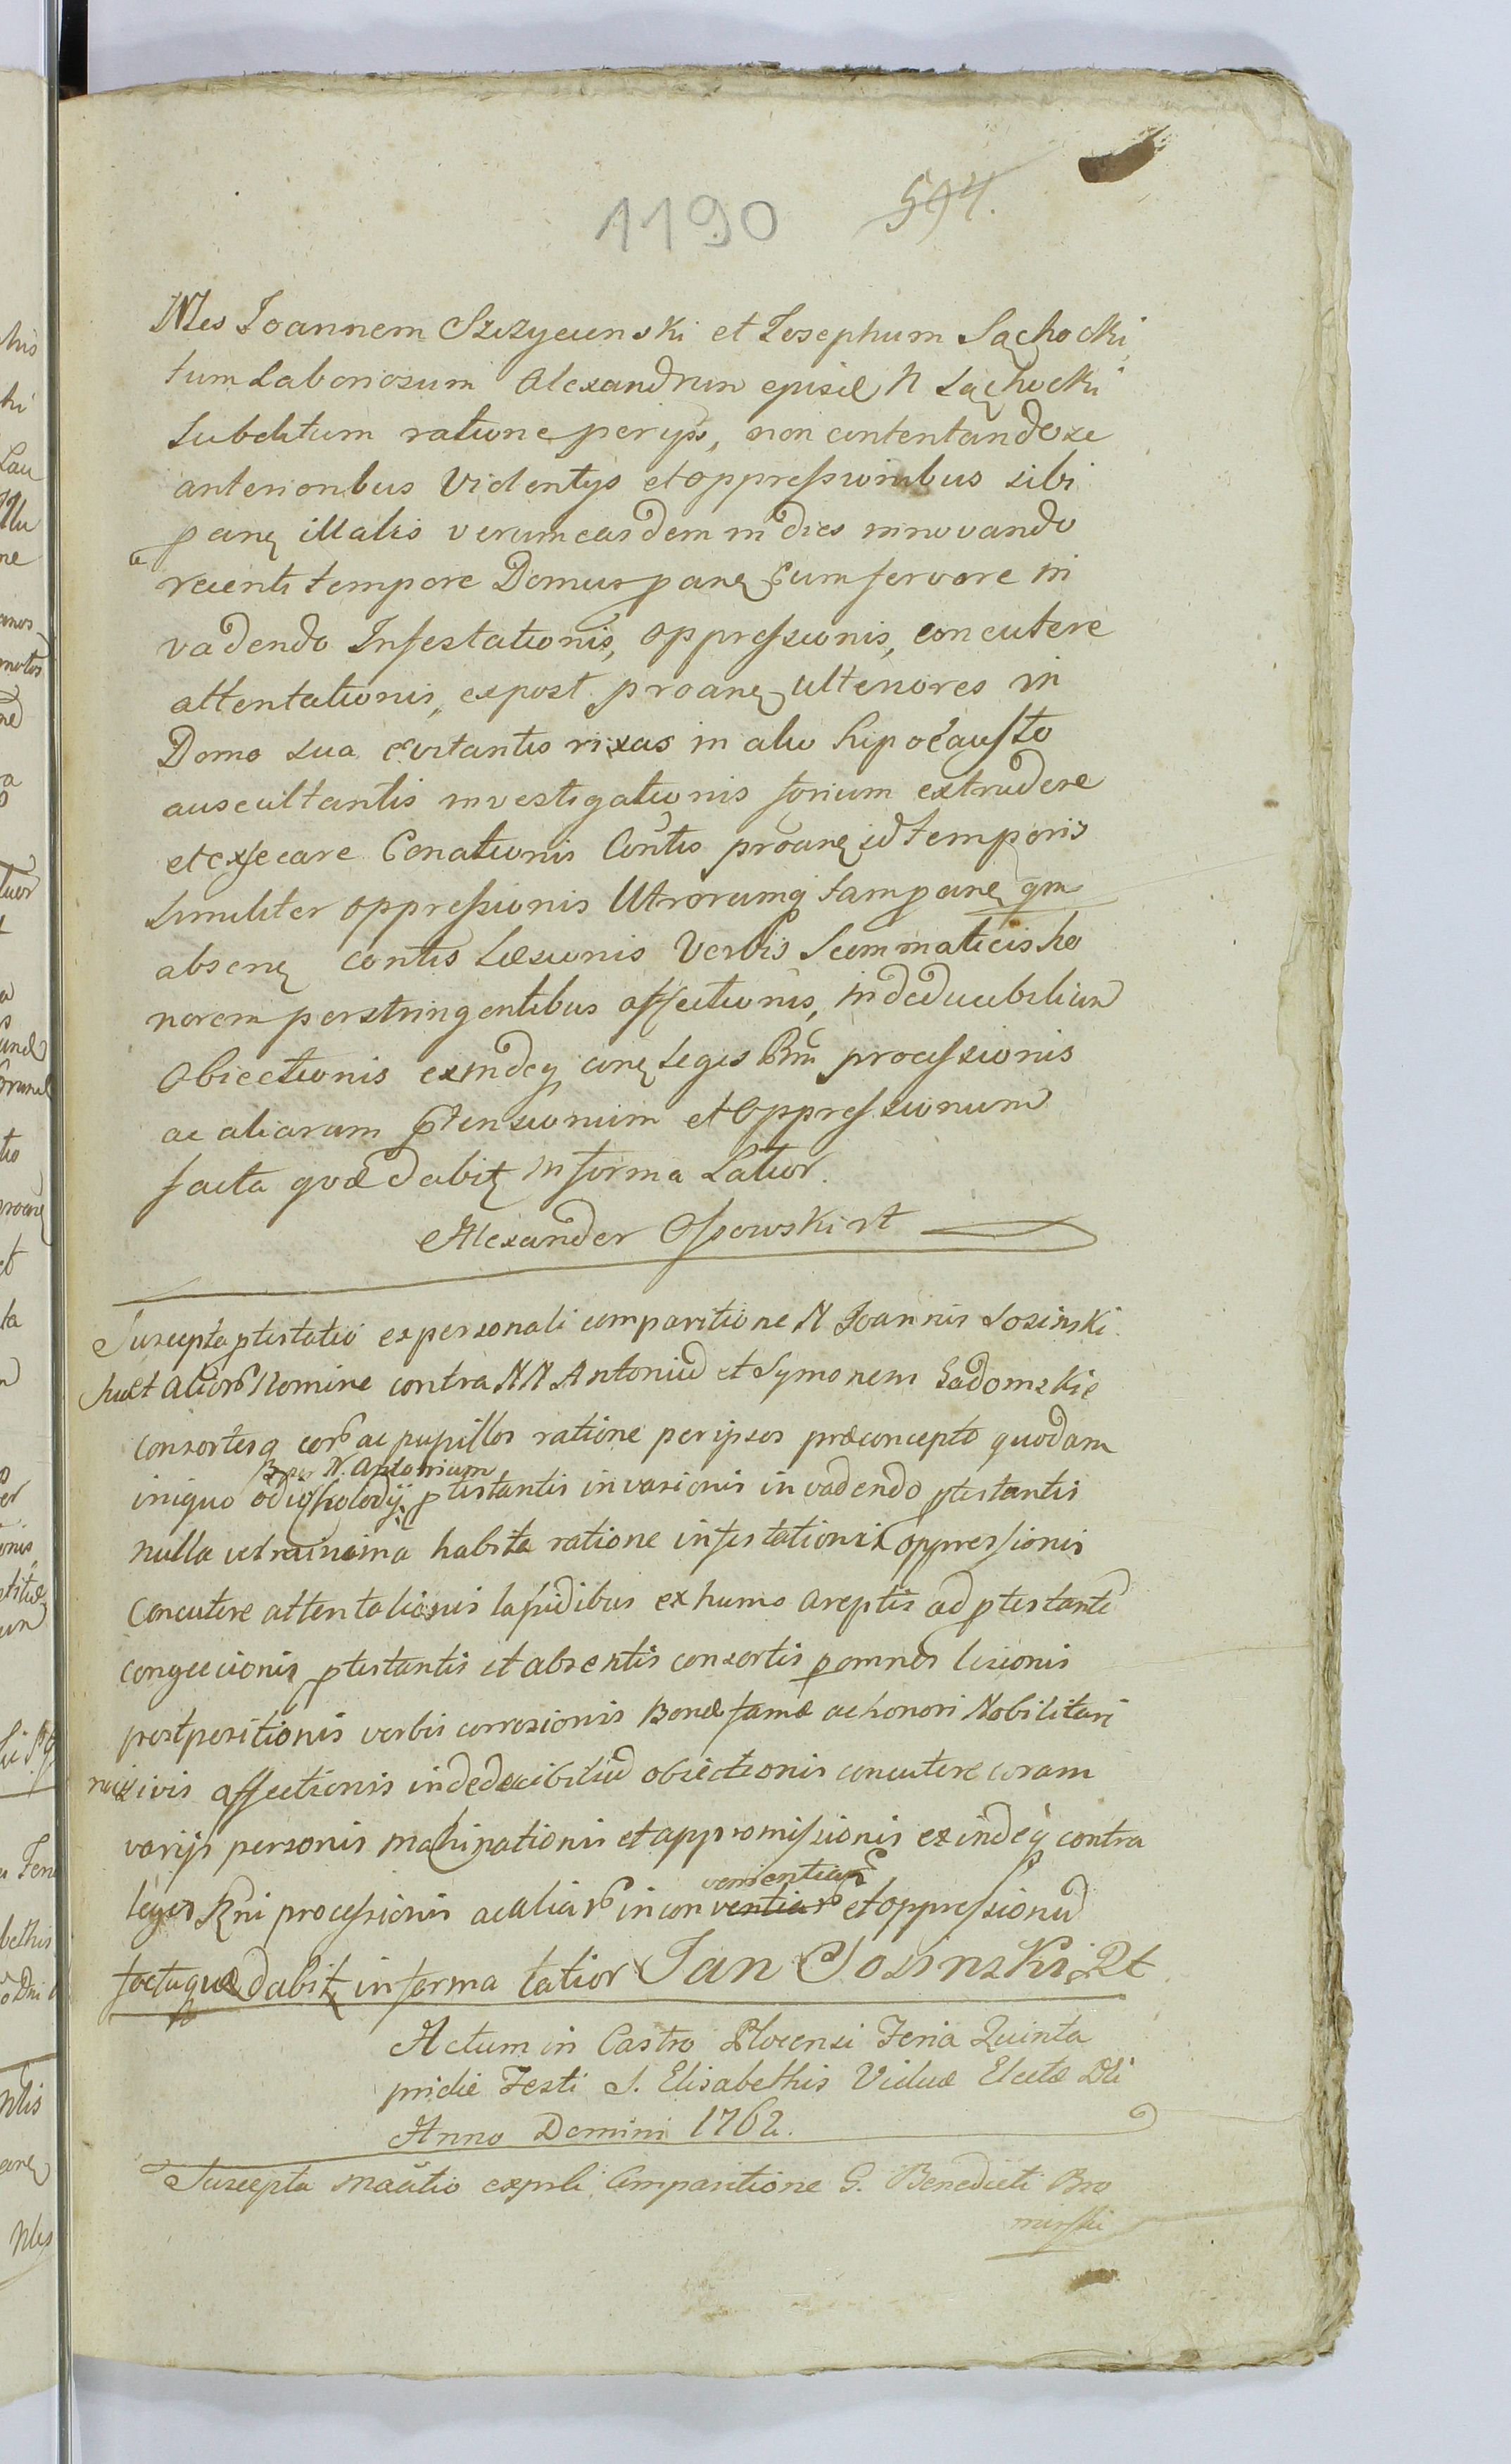 1190 594.
Nles Joannem Szczycienski et Josephum Sąchocki
tum Laboriosum Alexandrum ejusd N Sąchocki
Subditum ratione per ipsos, non contentandose
anterionbus Violentijs et oppressionibus sibi
panę illatis verum easdem in dies innovando
recenti tempore Domus panę cum fervore in
vadendo Infestationis, oppressionis, concutere
attentationis, expost proanę ulteriores in
Domo sua evitantis rixas in alio hipocausto
auscultantis investigationis forium extrudere
et exsecare Conationis Contis proanę id temporis
similiter oppressionis Utrorumq tam panę qm
absenę contis Læsionis Verbis Scommaticis ho
norem perstringentibus affectionis, indeducibilium
Obiectionis exindeq conę Leges Rni processionis
ac aliarum ptensionum et Oppressionum
facta qvæ dabitę in forma Latior.
Alexander Ossowski rt
Suscepta ptestatio ex personali comparitione N. Joannis Losinski
suo et alior Nomine contra NN Antoniu et Symonem Sadomskie
consortesq eor ac pupillos ratione per ipsos præconcepto quodam
Bono N. Antonium
iniquo odio ptestantis invasionis invadendo ptestantis
nulla vel minima habita ratione infestationis oppressionis
concutere attentationis lapidibus ex humo areptis ad ptestante
congecionis ptestantis et absentis consortis p omnes lesionis
postpositionis verbis corrosionis Bonæ famæ ac honori Nobilitari
nocivis affectionis indedecibiliu obiectionis concutere coram
varijs personis machinationis et appromissionis exindeq contra
venientiar
leges Rni processionis ac aliar inconventiar et oppressionu
facta quæ dabitę in forma latior Jan Łosinski Rt
Actum in Castro Plocensi Feria Quinta
pridie Festi S. Elisabethis Viduæ Electæ Dli
Anno Domini 1762.
Suscepta maãtio exprli Comparitione G. Benedicti Bro
mirski